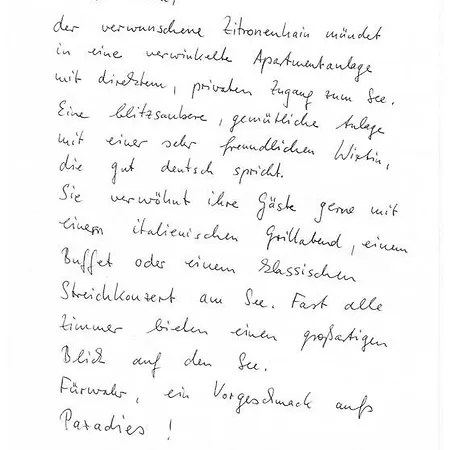 der verwunschene Zitronenhain mündet
in eine verwinkelte Apartmentanlage
mit direktem, privaten Zugang zum See.
Eine blitzsaubere, gemütliche Anlage
mit einer sehr freundlichen Wirtin,
die gut deutsch spricht.
Sie verwöhnt ihre Gäste gerne mit
einem italienischen Grillabend, einem
Buffet oder einem klassischen
Streichkonzert am See. Fast alle
Zimmer bieten einen großartigen
Blick auf den See.
Fürwahr, ein Vorgeschmack aufs
Paradies!